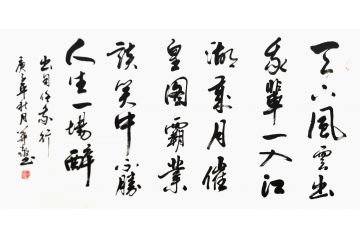 天下風雲出
我輩一入江
湖歲月催
皇圖霸業
談笑中不勝
人生一場醉
庚子年秋月